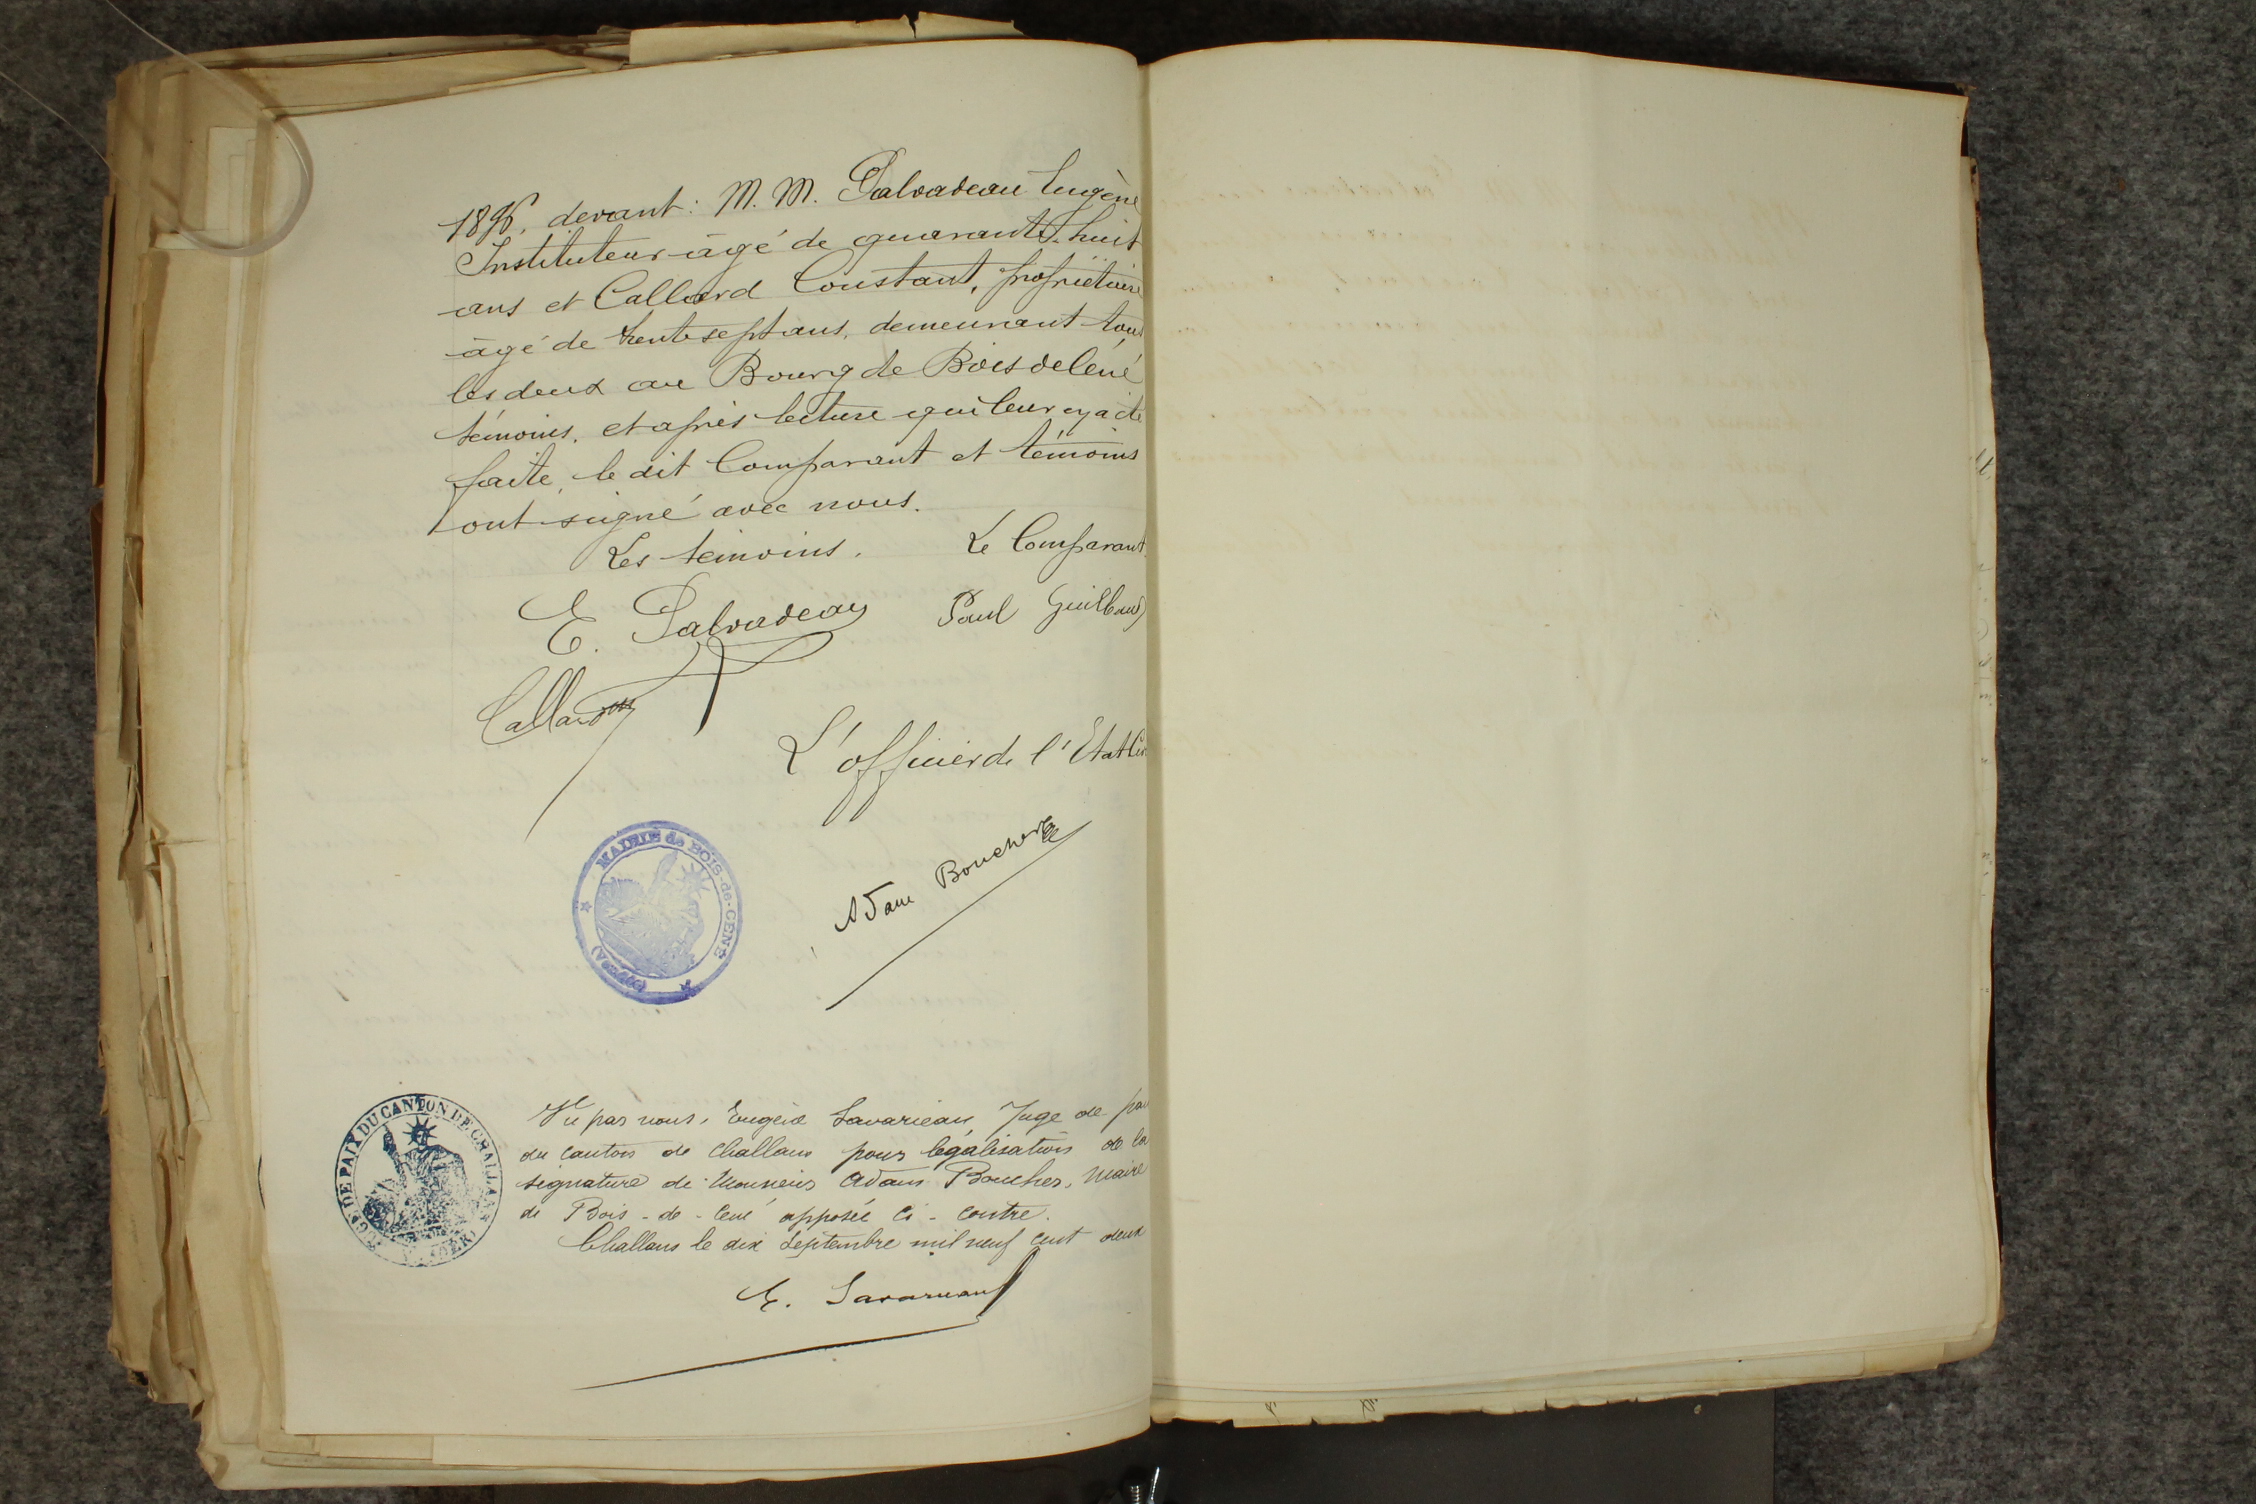 1896, devant: M. M. Palvadeau Eugène
Instituteur âgé de quarante-huit
ans et Callard Constant, propriétaire
âgé de trente sept ans, demeurant tous
les deux au Bourg de Bois de Céné
témoins, et après lecture qui leur en a été
faite, le dit Comparant et témoins
ont signé avec nous.
Les témoins. Le Comparant
E. Palvadeau Paul Guilbaud
Callard
L'officier de l'Etat Civ
MAIRIE de BOIS-de-CENÉ
(Vendée)
Adam Boucher
Vu par nous, Eugène Savarieau, Juge de paix
du canton de Challans pour légalisation de la
signature de Monsieur Adam Boucher, Maire
de Bois-de-Cené apposée ci-contre.
Challans le dix Septembre mil neuf cent deux
E. Savarieau
DE PAIX DU CANTON DE CHALLANS